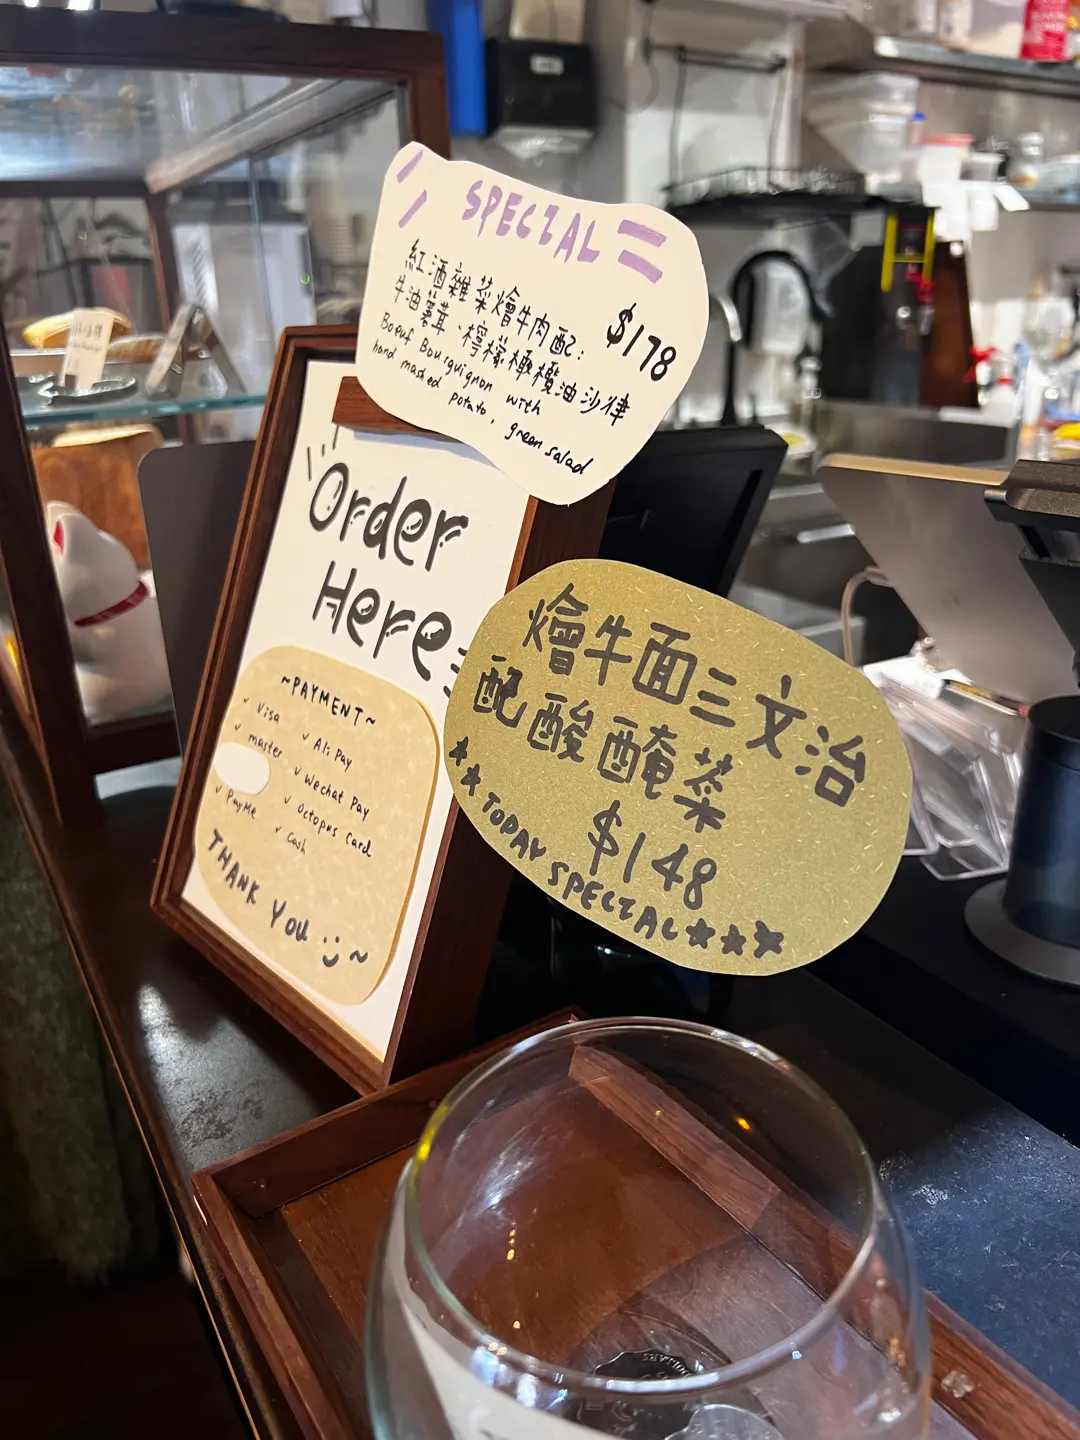 SPECIAL
紅酒雜菜燴牛肉配:
牛油薯茸、檸檬橄欖油沙律
$178
Boeuf Bourguignon with
hand mashed potato, green salad
Order
Here
~PAYMENT~
✓ Visa
✓ master
✓ PayMe
✓ Ali Pay
✓ Wechat Pay
✓ Octopus Card
✓ Cash
THANK YOU
燴牛面三文治
配酸醃菜
$148
★★TODAY SPECIAL★★★